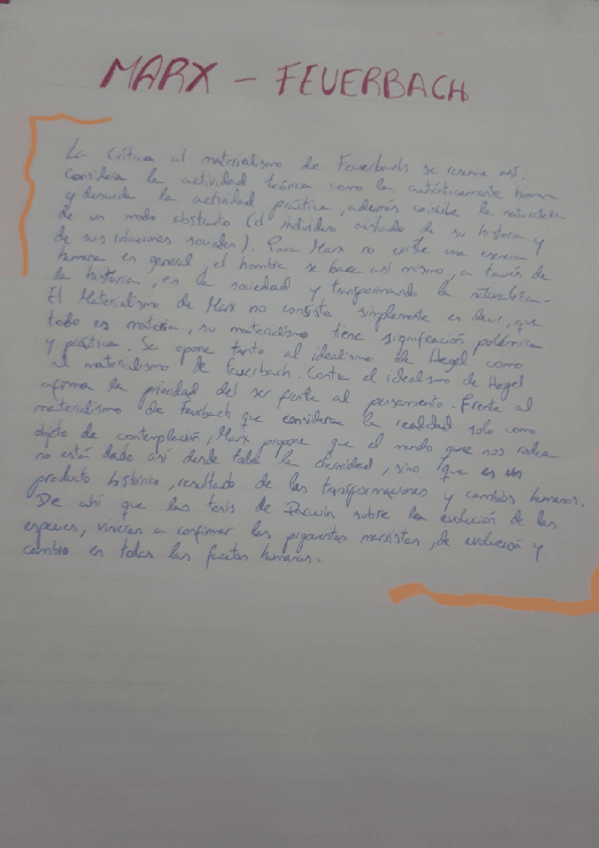 MARX - FEUERBACH
La crítica al materialismo de Feuerbach se resume así.
Considera la actividad teórica como la auténticamente humana
y descuida la actividad práctica, además concibe la naturaleza
de un modo abstracto (el individuo aislado de su historia y
de sus relaciones sociales). Para Marx no existe una esencia
humana en general, el hombre se hace así mismo, a través de
la historia, en la sociedad y transformando la naturaleza.
El Materialismo de Marx no consiste simplemente es decir, que
todo es materia, su materialismo tiene significación polémica
y práctica. Se opone tanto al idealismo de Hegel como
al materialismo de Feuerbach. Contra el idealismo de Hegel
afirma la prioridad del ser frente al pensamiento. Frente al
materialismo de Feurbach que considera la realidad solo como
objeto de contemplación, Marx propone que el mundo que nos rodea
no está dado así desde toda la eternidad, sino que es un
producto histórico, resultado de las transformaciones y cambios humanos.
De ahí que las tesis de Darwin sobre la evolución de las
especies, vinieran a confirmar las propuestas marxistas, de evolución y
cambio en todas las facetas humanas.